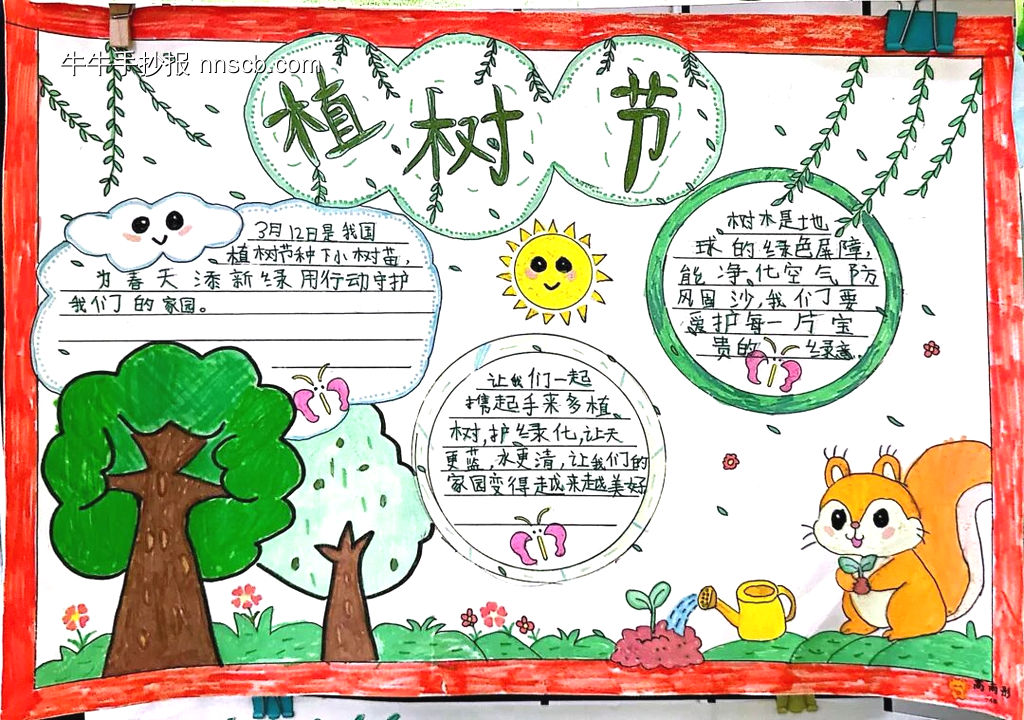 牛牛手抄报 nnscb.com
植树节
3月12日是我国
植树节种下小树苗,
为春天添新绿用行动守护
我们的家园。
树木是地
球的绿色屏障,
能净化空气防
风固沙,我们要
爱护每一片宝
贵的 绿意.
让我们一起
携起手来多植
树,护绿化,让天
更蓝,水更清,让我们的
家园变得越来越美好